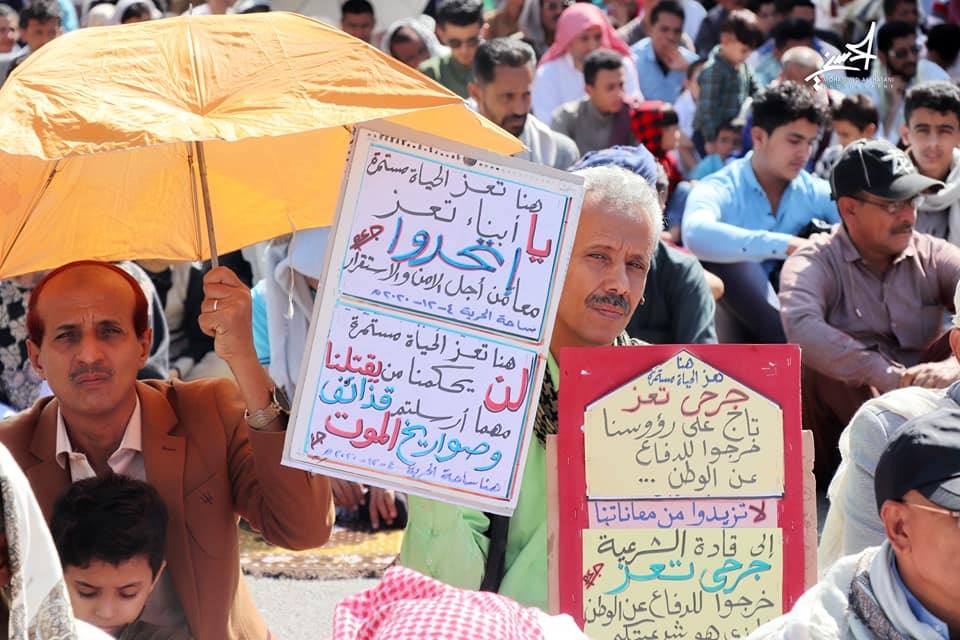 هنا تعز الحياة مستمرة
يا أبناء تعز
إتحدوا
معاً من أجل الامن والاستقرار
ساحة الحرية ٤-١٢-٢٠٢٠م
هنا تعز الحياة مستمرة
لن يحكمنا من يقتلنا
مهما أرسلتم قذائف
وصواريخ الموت
هنا ساحة الحرية ٤-١٢-٢٠٢٠م
هنا
تعز الحياة مستمرة
جرحى تعز
تاج على رؤوسنا
خرجوا للدفاع
عن الوطن ...
لا تزيدوا من معاناتنا
إلى قادة الشرعية
جرحى تعز
خرجوا للدفاع عن الوطن
MOHAMMED ALHASANI
PHOTOGRAPHY